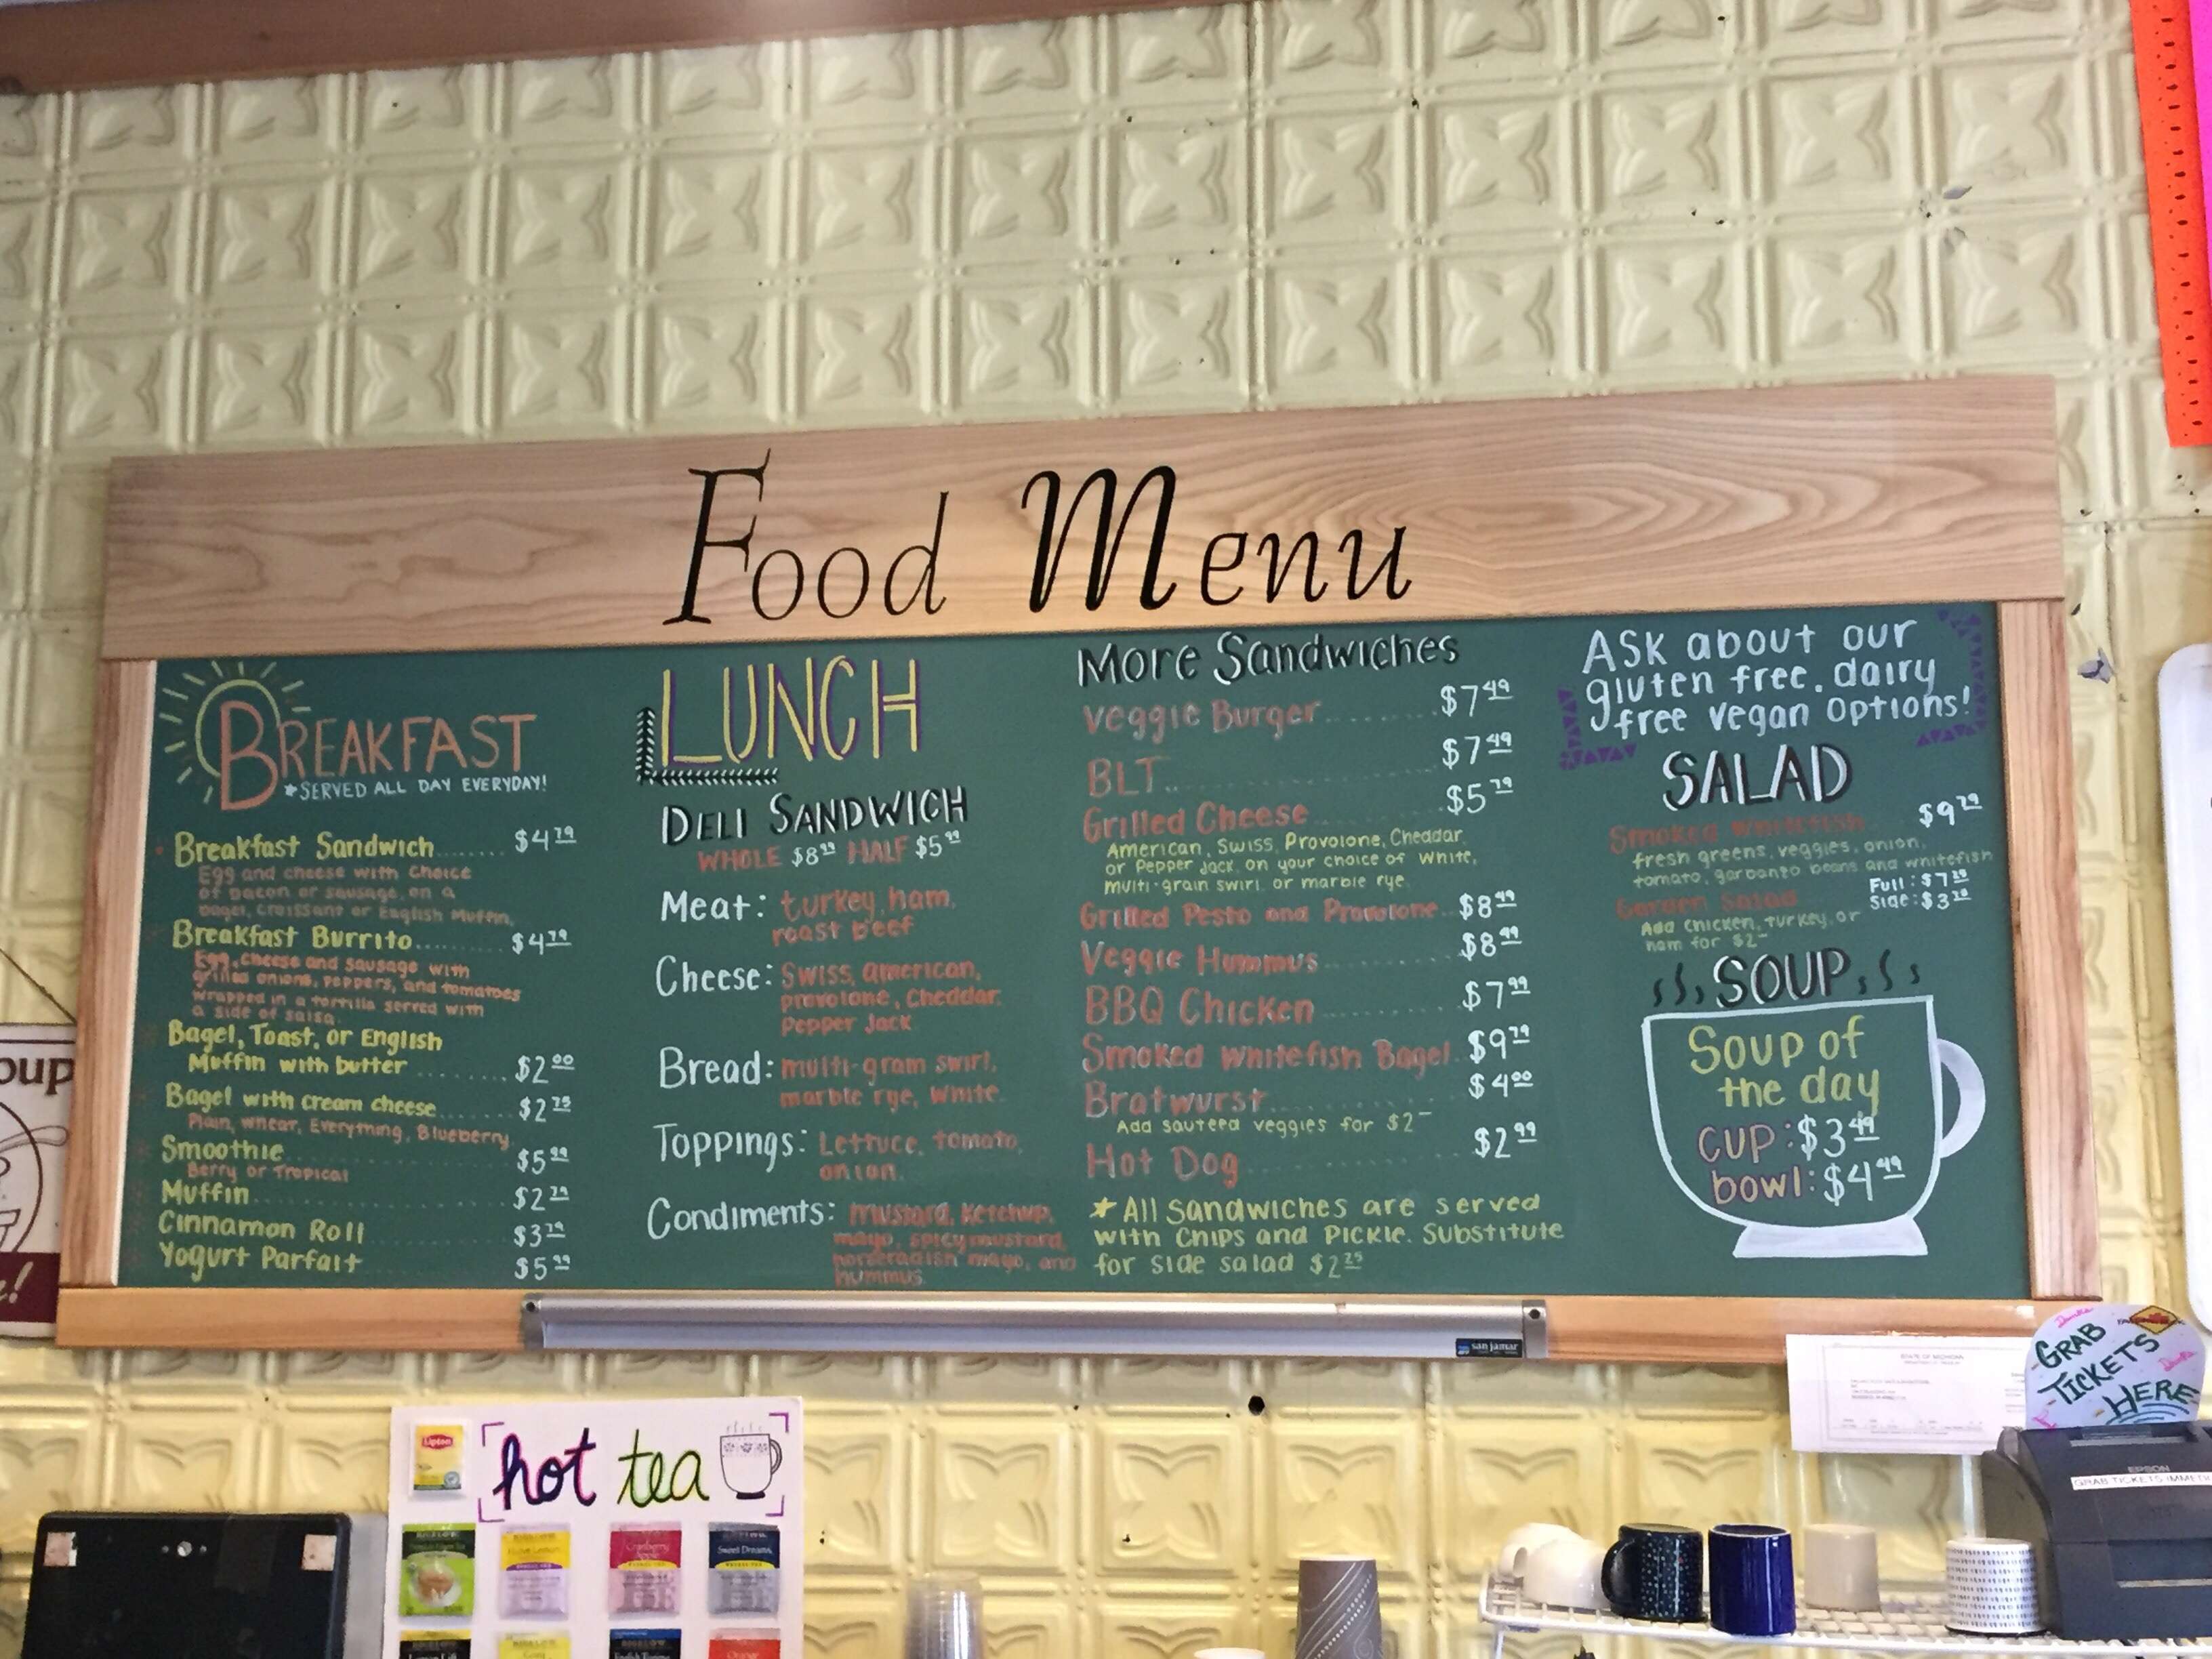 Food Menu
BREAKFAST
*SERVED ALL DAY EVERYDAY!
Breakfast Sandwich........ $4.79
Egg and cheese with choice
of bacon or sausage, on a
bagel, croissant or English Muffin.
Breakfast Burrito......... $4.79
Egg, cheese and sausage with
grilled onions, peppers, and tomatoes
wrapped in a tortilla served with
a side of salsa.
Bagel, Toast, or English
Muffin with butter ........ $2.00
Bagel with cream cheese...... $2.75
Plain, wheat, Everything, Blueberry
Smoothie.......... $5.99
Berry or Tropical
Muffin.......... $2.79
Cinnamon Roll $3.79
Yogurt Parfait $5.99
LUNCH
DELI SANDWICH
WHOLE $8.99 HALF $5.99
Meat: turkey, ham,
roast beef
Cheese: Swiss, american,
provolone, cheddar,
Pepper Jack
Bread: multi-grain swirl,
marble rye, white
Toppings: Lettuce, tomato,
onion.
Condiments: mustard, ketchup,
mayo, spicy mustard,
horseradish mayo, and
hummus
More Sandwiches
Veggie Burger........ $7.49
BLT.......... $7.49
Grilled Cheese........ $5.79
American, Swiss, Provolone, Cheddar,
or Pepper Jack, on your choice of white,
multi-grain swirl, or marble rye.
Grilled Pesto and Provolone.. $8.49
Veggie Hummus.......... $8.49
BBQ Chicken.......... $7.99
Smoked Whitefish Bagel. $9.79
Bratwurst.......... $4.00
Add sauteed veggies for $2
Hot Dog.......... $2.99
*All Sandwiches are served
with chips and pickle. Substitute
for side salad $2.25
ASK about our
gluten free, dairy
free vegan options!
SALAD
Smoked Whitefish $9.79
fresh greens, veggies, onion,
tomato, garbanzo beans and whitefish
Garden Salad
Full: $7.29
Side: $3.20
Add Chicken, Turkey, or
ham for $2
SOUP
Soup of
the day
cup: $3.49
bowl: $4.49
oup
san jamar
GRAB
TICKETS
HERE
EPSON
GRAB TICKETS IMMEDI
STATE OF MICHIGAN
Lipton
hot tea
BIGELOW
Cranberry
Apple
Sweet Dreams
BIGELOW